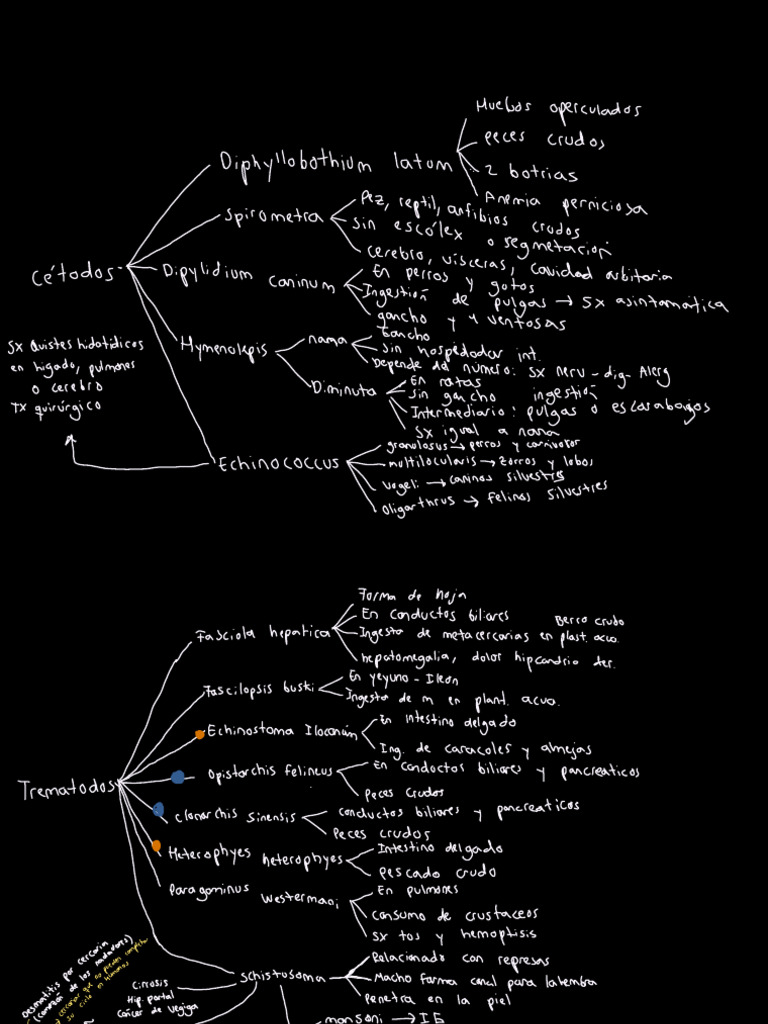 Huebos operculados
peces crudos
Diphyllobothium latum
2 botrias
Anemia perniciosa
Spirometra
Pez, reptil, anfibios crudos
Sin escólex o segmetación
cerebro, vísceras, cavidad orbitaria
Céstodos
Dipylidium caninum
En perros y gatos
Ingestión de pulgas → SX asintamatica
gancho y 4 ventosas
Hymenolepis
nana
Gancho
Sin hospedador int.
Depende del número: SX nerv - dig - Alerg
Diminuta
En ratas
Sin gacho ingestión
Intermediario: pulgas o escarabajos
SX igual a nana
SX Quistes hidatídicos
en higado, pulmones
o cerebro
TX quirúrgico
Echinococcus
granulosus → perros y carnivoros
multilocularis → zorros y lobos
Vogeli → caninos silvestres
Oligarthrus → felinos silvestres
Trematodos
Fasciola hepatica
Forma de hoja
En conductos biliares
Berro crudo
Ingesta de metacercarias en plast. acuo.
hepatomegalia, dolor hipcondrio der.
Fascilopsis buski
En yeyuno - Ileon
Ingesta de m en plant. acua.
Echinostoma Ilocanum
En intestino delgado
Ing. de caracoles y almejas
Opistorchis felineus
En conductos biliares y pancreaticos
peces crudos
Clonorchis sinensis
conductos biliares y pancreaticos
Peces crudos
Heterophyes heterophyes
Intestino delgado
pescado crudo
Paragominus westermani
En pulmones
consumo de crustaceos
SX tos y hemoptisis
Schistosoma
Relacionado con represas
Macho forma canal para la hembra
penetra en la piel
mansoni → IG
Cirrosis
Hip. portal
Cáncer de vegiga
Desmatitis por cercaria
(comezón de los nadadores)
cercariar que no pueden completar
su ciclo en humanos